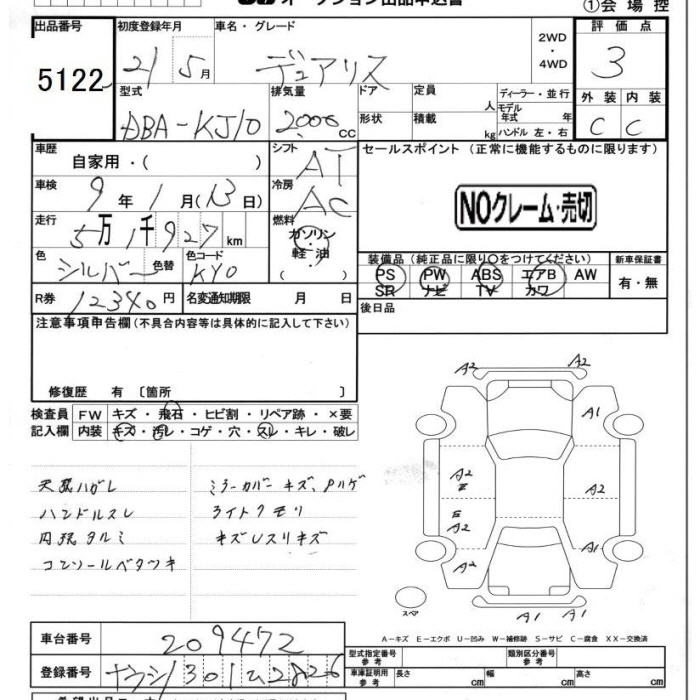 オークション出品申込書 ①会場控
出品番号 初度登録年月 車名・グレード 2WD・4WD 評価点
5122 21 5月 デュアリス 3
型式 排気量 ドア 定員 人 ディーラー・並行
モデル年式 年
DBA-KJ10 2,000cc 形状 積載 kg ハンドル 左・右
外装 内装
C C
車歴 自家用・( ) シフト AT セールスポイント(正常に機能するものに限ります)
車検 9年1月(13日) 冷房 AC
NOクレーム・売切
走行 5万1千927km 燃料 ガソリン・軽油 ( )
装備品(純正品に限り〇をつけてください) 新車保証書
色 シルバー 色替 色コード KY0
PS PW ABS エアB AW 有・無
SR ナビ TV カワ
R券 12340円 名変通知期限 月 日 後日品
注意事項申告欄(不具合内容等は具体的に記入して下さい)
修復歴 有 〔箇所 〕
検査員記入欄 FW キズ・飛石・ヒビ割・リペア跡・×要
内装 キズ・汚レ・コゲ・穴・スレ・キレ・破レ
天張ハガレ ミラーカバーキズ、Pハゲ
ハンドルスレ ライトクモリ
内張タルミ キズレスリキズ
コンソールベタツキ
A2 A2
A1
A2 A2
E
E
A2
A2 A1
A1 A1
スペア
A-キズ E-エクボ U-凹み W-補修跡 S-サビ C-腐食 XX-交換済
車台番号 209472 型式指定番号 参考 類別区分番号 参考
登録番号 301 2826 車庫証明用 参考 長さ cm 幅 cm 高さ cm